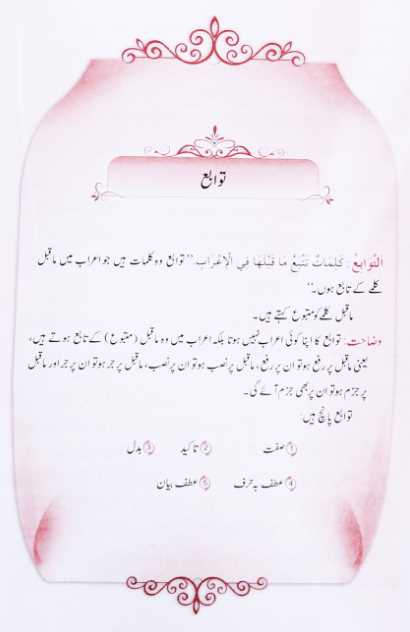 توابع
التَّوَابِعُ: كَلِمَاتٌ تَتْبَعُ مَا قَبْلَهَا فِي الْإِعْرَابِ. ’’توابع وہ کلمات ہیں جو اعراب میں ماقبل
کلمے کے تابع ہوں۔‘‘
ماقبل کلمے کو متبوع کہتے ہیں۔
وضاحت: توابع کا اپنا کوئی اعراب نہیں ہوتا بلکہ اعراب میں وہ ماقبل (متبوع) کے تابع ہوتے ہیں،
یعنی ماقبل پر رفع ہو تو ان پر رفع، ماقبل پر نصب ہو تو ان پر نصب، ماقبل پر جر ہو تو ان پر جر اور ماقبل
پر جزم ہو تو ان پر بھی جزم آئے گی۔
توابع پانچ ہیں:
① صفت ② تاکید ③ بدل
④ عطف بہ حرف ⑤ عطف بیان